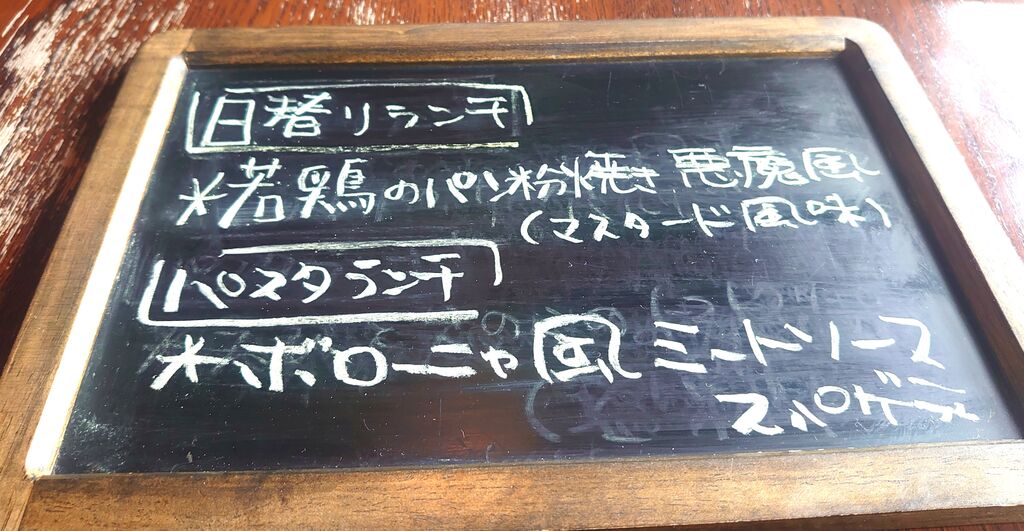 日替りランチ
*若鶏のパン粉焼き 悪魔風
(マスタード風味)
パスタランチ
*ボローニャ風 ミートソース
スパゲティ